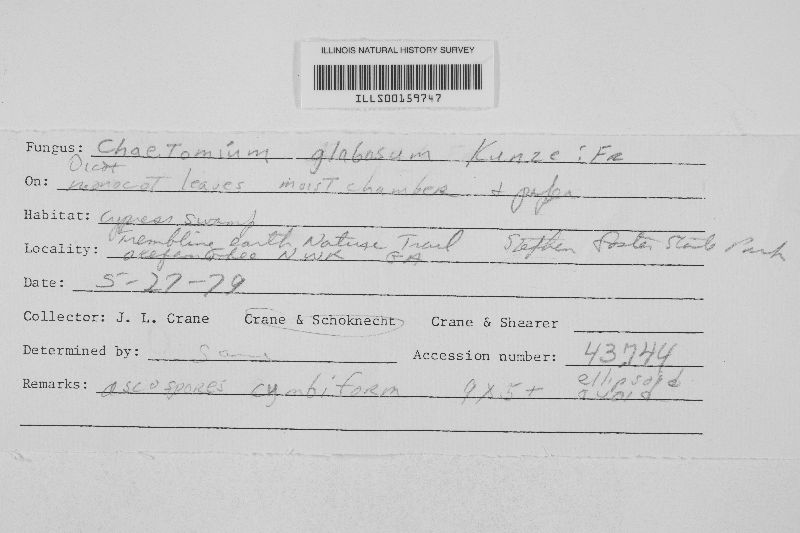 ILLINOIS NATURAL HISTORY SURVEY
ILLS00159747
Fungus: Chaetomium globosum Kunze : Fr
Dicot
On: monocot leaves moist chamber +
Habitat: Cypress swamp
Trembling earth Nature Trail Stephen Foster State Park
Locality: Okefenokee NWR GA
Date: 5-27-79
Collector: J. L. Crane Crane & Schoknecht Crane & Shearer
Determined by: Same
Accession number: 43744
Remarks: ascospores cymbiform 9 x 5 + ellipsoid
ovoid